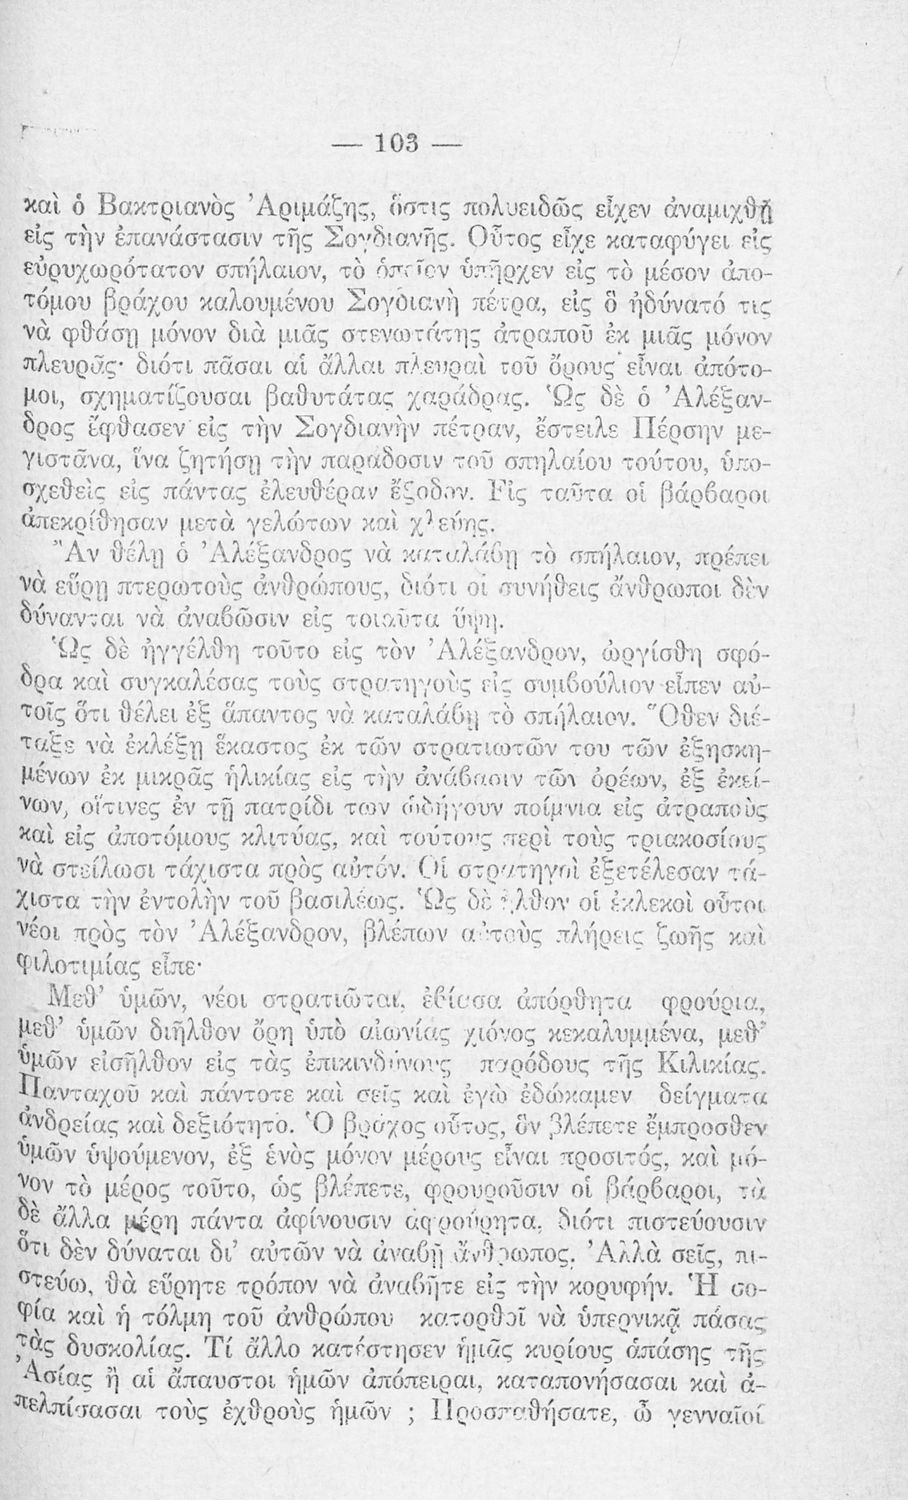 — 103 —
καὶ ὁ Βακτριανὸς Ἀριμάζης, ὅστις πολυειδῶς εἶχεν ἀναμιχθῆ
εἰς τὴν ἐπανάστασιν τῆς Σογδιανῆς. Οὗτος εἶχε καταφύγει εἰς
εὐρυχωρότατον σπήλαιον, τὸ ὁποῖον ὑπῆρχεν εἰς τὸ μέσον ἀπο-
τόμου βράχου καλουμένου Σογδιανὴ πέτρα, εἰς ὃ ἠδύνατό τις
νὰ φθάσῃ μόνον διὰ μιᾶς στενωτάτης ἀτραποῦ ἐκ μιᾶς μόνον
πλευρᾶς· διότι πᾶσαι αἱ ἄλλαι πλευραὶ τοῦ ὄρους εἶναι ἀπότο-
μοι, σχηματίζουσαι βαθυτάτας χαράδρας. Ὡς δὲ ὁ Ἀλέξαν-
δρος ἔφθασεν εἰς τὴν Σογδιανὴν πέτραν, ἔστειλε Πέρσην με-
γιστᾶνα, ἵνα ζητήσῃ τὴν παράδοσιν τοῦ σπηλαίου τούτου, ὑπο-
σχεθεὶς εἰς πάντας ἐλευθέραν ἔξοδον. Εἰς ταῦτα οἱ βάρβαροι
ἀπεκρίθησαν μετὰ γελώτων καὶ χλεύης.
Ἂν θέλῃ ὁ Ἀλέξανδρος νὰ καταλάβῃ τὸ σπήλαιον, πρέπει
νὰ εὕρῃ πτερωτοὺς ἀνθρώπους, διότι οἱ συνήθεις ἄνθρωποι δὲν
δύνανται νὰ ἀναβῶσιν εἰς τοιαῦτα ὕψη.
Ὡς δὲ ἠγγέλθη τοῦτο εἰς τὸν Ἀλέξανδρον, ὠργίσθη σφό-
δρα καὶ συγκαλέσας τοὺς στρατηγοὺς εἰς συμβούλιον εἶπεν αὐ-
τοῖς ὅτι θέλει ἐξ ἅπαντος νὰ καταλάβῃ τὸ σπήλαιον. Ὅθεν διέ-
ταξε νὰ ἐκλέξῃ ἕκαστος ἐκ τῶν στρατιωτῶν του τῶν ἐξησκη-
μένων ἐκ μικρᾶς ἡλικίας εἰς τὴν ἀνάβασιν τῶν ὀρέων, ἐξ ἐκεί-
νων, οἵτινες ἐν τῇ πατρίδι των ὡδήγουν ποίμνια εἰς ἀτραποὺς
καὶ εἰς ἀποτόμους κλιτύας, καὶ τούτους περὶ τοὺς τριακοσίους
νὰ στείλωσι τάχιστα πρὸς αὐτόν. Οἱ στρατηγοὶ ἐξετέλεσαν τά-
χιστα τὴν ἐντολὴν τοῦ βασιλέως. Ὡς δὲ ἦλθον οἱ ἐκλεκοὶ οὗτοι
νέοι πρὸς τὸν Ἀλέξανδρον, βλέπων αὐτοὺς πλήρεις ζωῆς καὶ
φιλοτιμίας εἶπε·
Μεθ’ ὑμῶν, νέοι στρατιῶται, ἐβίασα ἀπόρθητα φρούρια,
μεθ’ ὑμῶν διῆλθον ὄρη ὑπὸ αἰωνίας χιόνος κεκαλυμμένα, μεθ’
ὑμῶν εἰσῆλθον εἰς τὰς ἐπικινδύνους παρόδους τῆς Κιλικίας.
Πανταχοῦ καὶ πάντοτε καὶ σεῖς καὶ ἐγὼ ἐδώκαμεν δείγματα
ἀνδρείας καὶ δεξιότητο. Ὁ βράχος οὗτος, ὃν βλέπετε ἔμπροσθεν
ὑμῶν ὑψούμενον, ἐξ ἑνὸς μόνον μέρους εἶναι προσιτός, καὶ μό-
νον τὸ μέρος τοῦτο, ὡς βλέπετε, φρουροῦσιν οἱ βάρβαροι, τὰ
δὲ ἄλλα μέρη πάντα ἀφίνουσιν ἀφρούρητα, διότι πιστεύουσιν
ὅτι δὲν δύναται δι’ αὐτῶν νὰ ἀναβῇ ἄνθρωπος. Ἀλλὰ σεῖς, πι-
στεύω, θὰ εὕρητε τρόπον νὰ ἀναβῆτε εἰς τὴν κορυφήν. Ἡ σο-
φία καὶ ἡ τόλμη τοῦ ἀνθρώπου κατορθοῖ νὰ ὑπερνικᾷ πάσας
τὰς δυσκολίας. Τί ἄλλο κατέστησεν ἡμᾶς κυρίους ἁπάσης τῆς
Ἀσίας ἢ αἱ ἄπαυστοι ἡμῶν ἀπόπειραι, καταπονήσασαι καὶ ἀ-
πελπίσασαι τοὺς ἐχθροὺς ἡμῶν ; Προσπαθήσατε, ὦ γενναῖοί